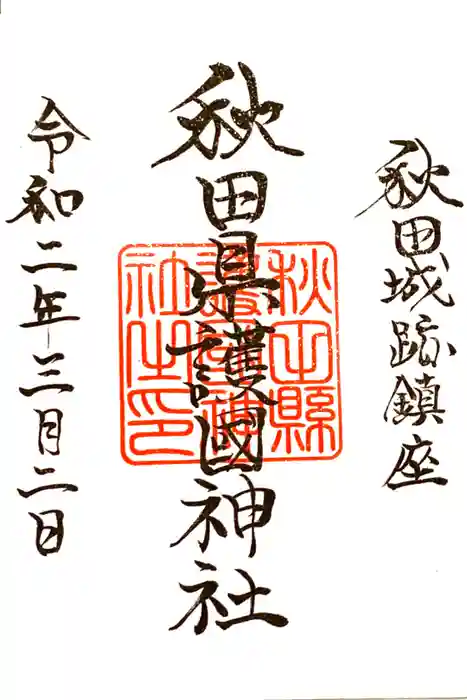 秋田城跡鎮座
秋田県護國神社
秋田縣護國神社之印
令和二年三月二日